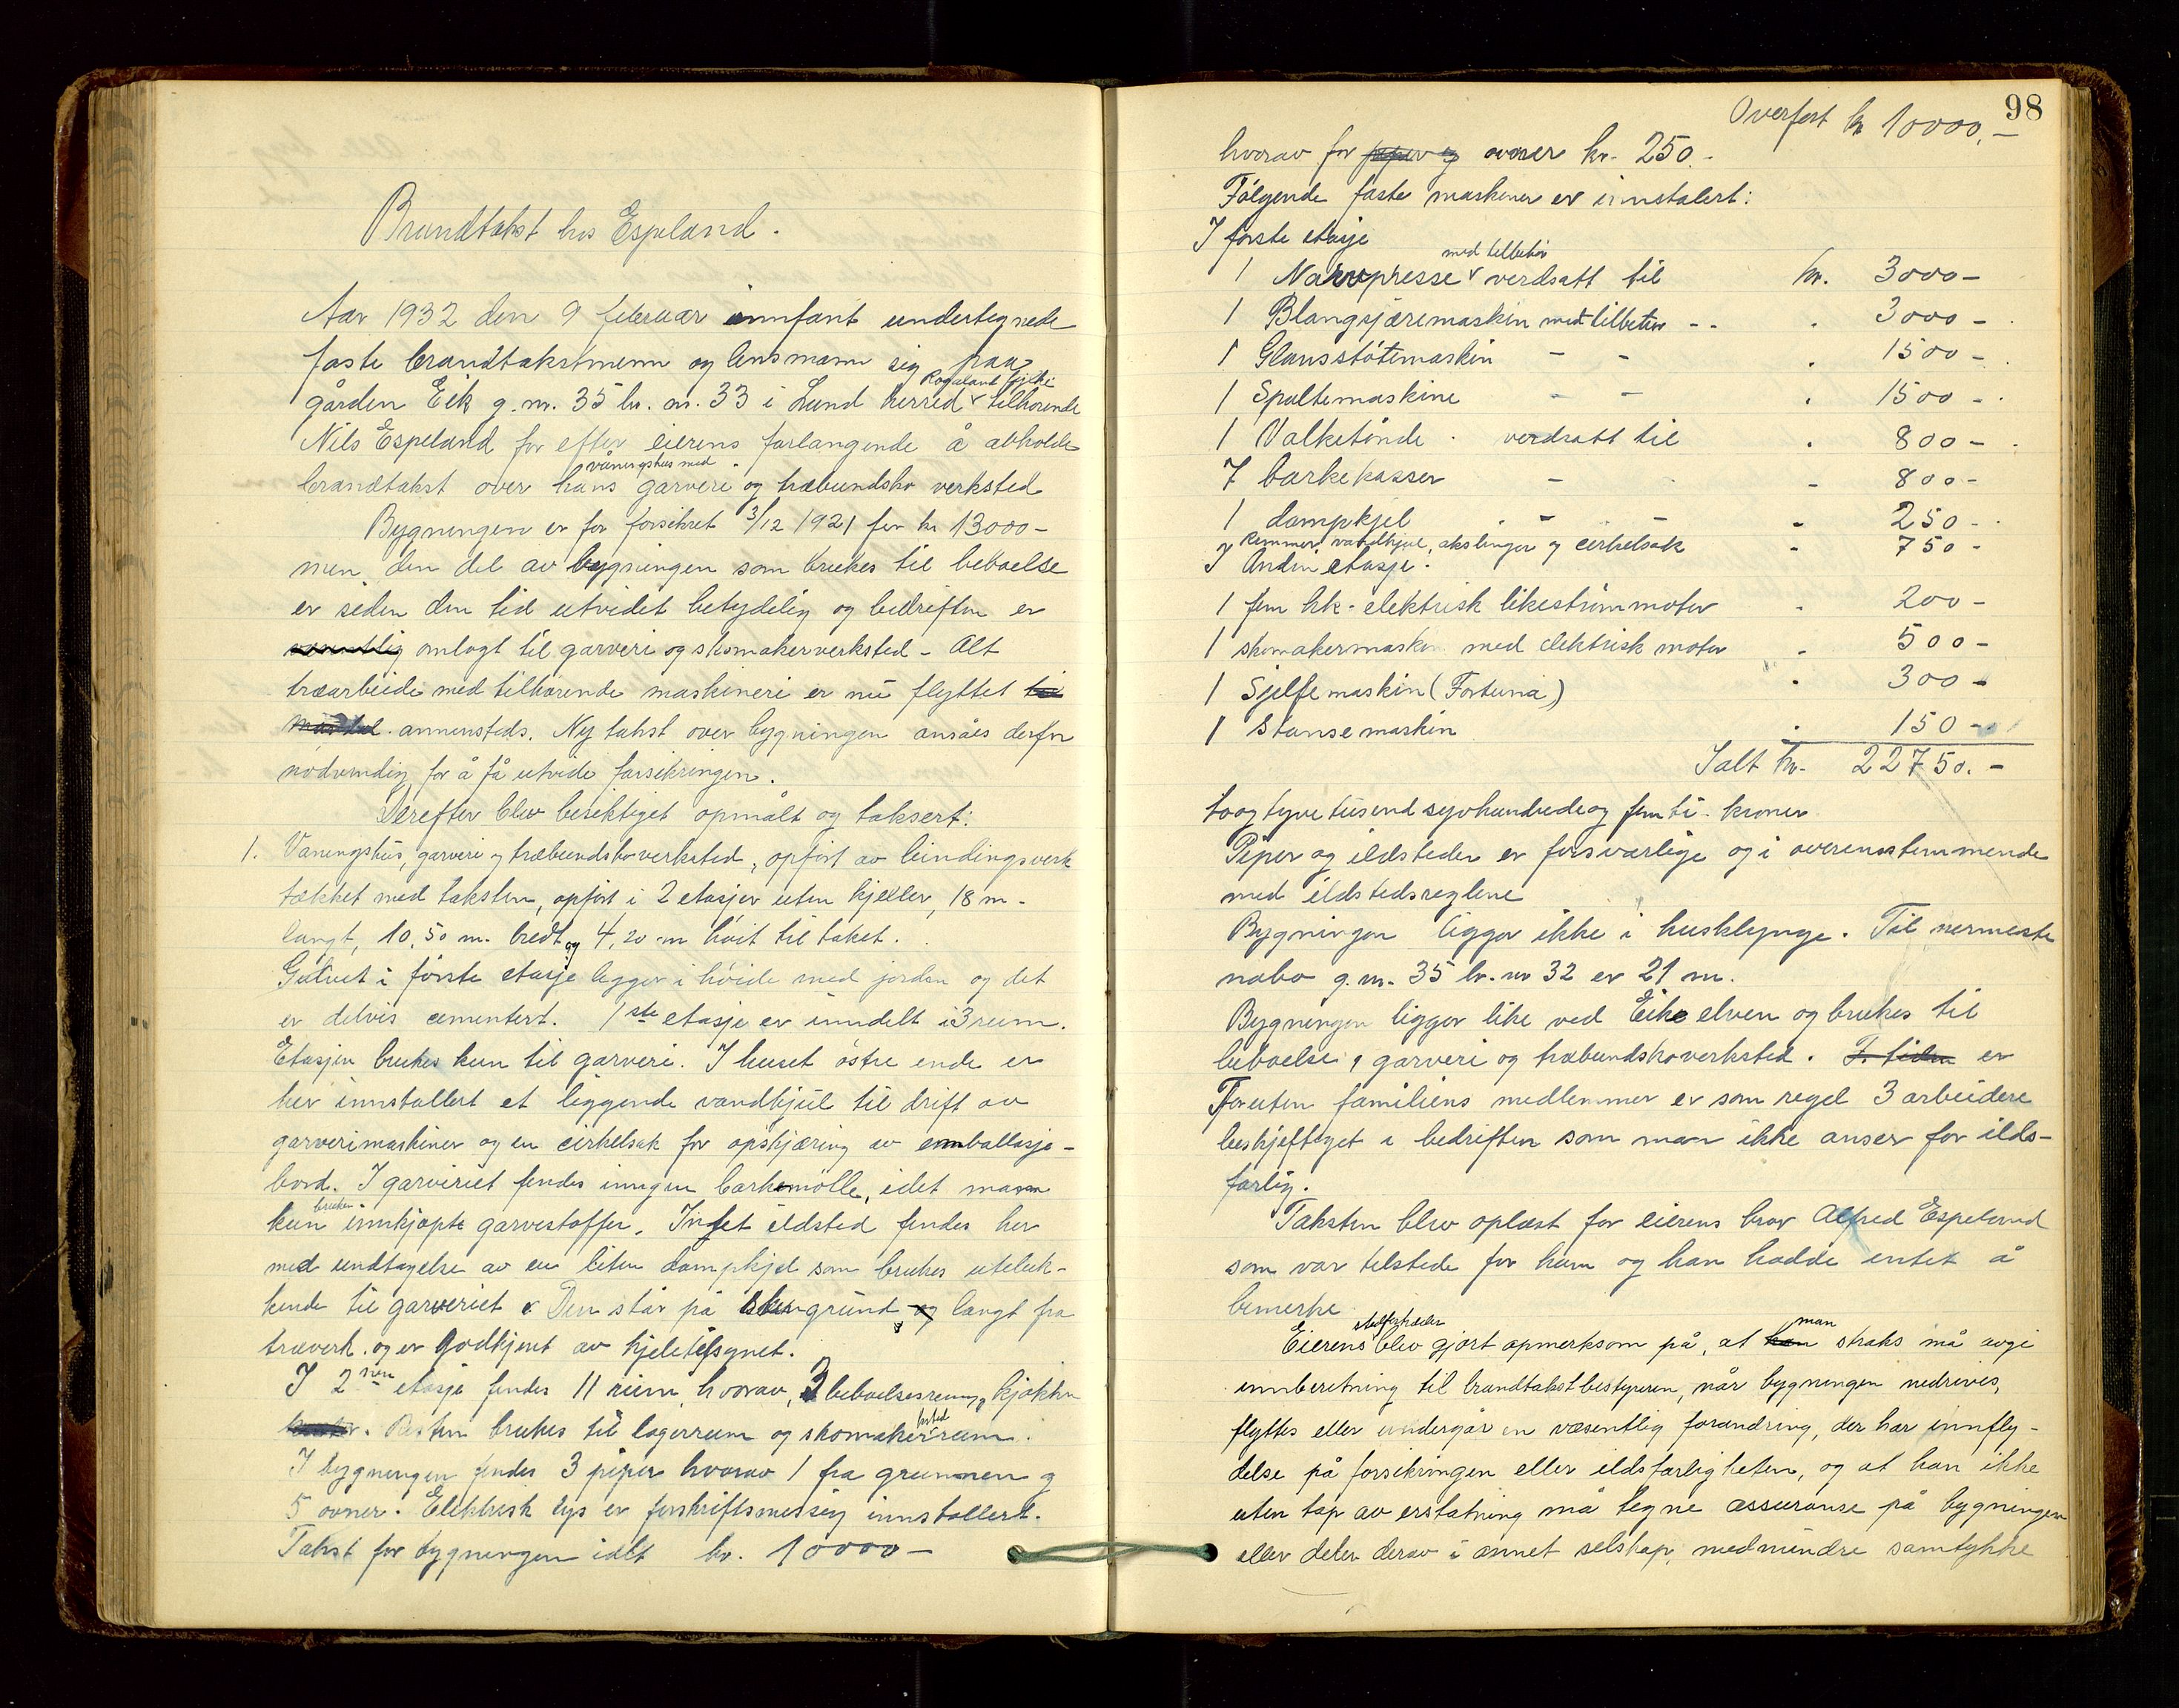 Brandtakst hos Espeland.
Aar 1932 den 9 februar innfant undertegnede
faste brandtakstmenn og lensmann sig paa
gården Eik g.nr. 35 br. nr. 33 i Lund herred Rogaland fylke tilhørende
Nils Espeland for efter eierens forlangende å avholde
brandtakst over hans våningshus med garveri og træbundsko verksted
Bygningen er før forsikret 3/12 1921 for kr 13000-
men den del av bygningen som brukes til beboelse
er siden den tid utvidet betydelig og bedriften er
omlagt til garveri og skomakerverksted - Alt
træarbeide med tilhørende maskineri er nu flyttet
annensteds. Ny takst over bygningen ansåes derfor
nødvendig for å få utvide forsikringen.
Derefter blev besiktiget opmålt og taksert:
1. Vaningshus, garveri og træbundskoverksted, opført av bindingsverk
tækket med taksten, opført i 2 etasjer uten kjeller, 18 m-
langt, 10,50 m. bredt og 4,20 m høit til taket.
Gulvet i første etasje ligger i høide med jorden og det
er delvis cementert. 1ste etasje er inndelt i 3 rum.
Etasjen brukes kun til garveri. I huset østre ende er
her innstallert et liggende vandhjul til drift av
garverimaskiner og en cirkelsak for opskjæring av emballasje-
bord. I garveriet findes inngen barkemølle, idet man
kun bruker innkjøpte garvestoffer. Intet ildsted findes her
med undtagelse av en liten dampkjel som brukes uteluk-
kende til garveriet. Den står på stengrund langt fra
træverk og er godkjent av kjeletilsynet.
I 2nen etasje findes 11 rum, hvorav 3 beboelsesrum, kjøkken
Resten brukes til lagerrum og skomakerverkstedrum.
I bygningen findes 3 piper hvorav 1 fra grunnen og
5 ovner. Elektrisk lys er forskriftsmessig innstallert.
Takst for bygningen ialt kr. 10000-
98
Overført kr 10000,-
hvorav for piper og ovner kr. 250.-
Følgende faste maskiner er innstalert:
I første etasje
1 Narvpresse med tilbehør verdsatt til kr. 3000-
1 Blangsjæremaskin med tilbehør - - . 3000-
1 Glansstøtemaskin - - . 1500-
1 Spaltemaskine - - . 1500-
1 Valketønde . verdsatt til . 800-
7 barkekasser - - 800-
1 dampkjel - - - 250-
Remmer, vandhjul, akslinger og cirkelsak - 750-
I Anden etasje.
1 fem hk. elektrisk likestrømmotor - 200-
1 skomakermaskin med elektrisk motor - 500-
1 Sjelfemaskin (Fortuna) . 300-
1 Stansemaskin . 150-
Ialt kr. 22750.-
toogtyvetusend syvhundredeog femti- kroner
Piper og ildsteder er forsvarlige og i overensstemmende
med ildstedsreglene
Bygningen ligger ikke i husklynge. Til nermeste
nabo g.nr. 35 br. nr 32 er 21 m.
Bygningen ligger like ved Eike elven og brukes til
beboelse, garveri og træbundskoverksted. er
Foruten familiens medlemmer er som regel 3 arbeidere
beskjeftiget i bedriften som man ikke anser for ilds-
farlig.
Taksten blev oplæst for eierens bror Alfred Espeland
som var tilstede for ham og han hadde intet å
bemerke
Eierens stedfortreder blev gjort opmerksom på, at man straks må avgi
innberetning til brandtakstbestyreren, når bygningen nedrives,
flyttes eller undergår en væsentlig forandring, der har innfly-
delse på forsikringen eller ildsfarligheten, og at han ikke
uten tap av erstatning må tegne assuranse på bygningen
eller deler derav i annet selskap, medmindre samtykke